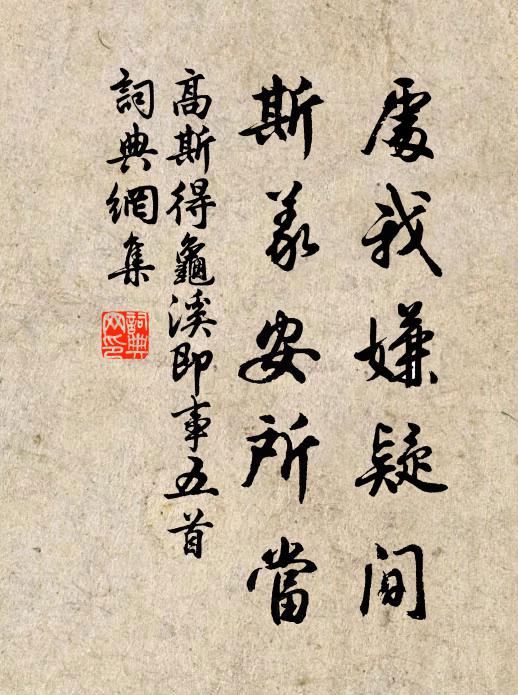 處我嫌疑間
斯義安所當
高斯得龜溪即事五首
詞典網集
詞典網印